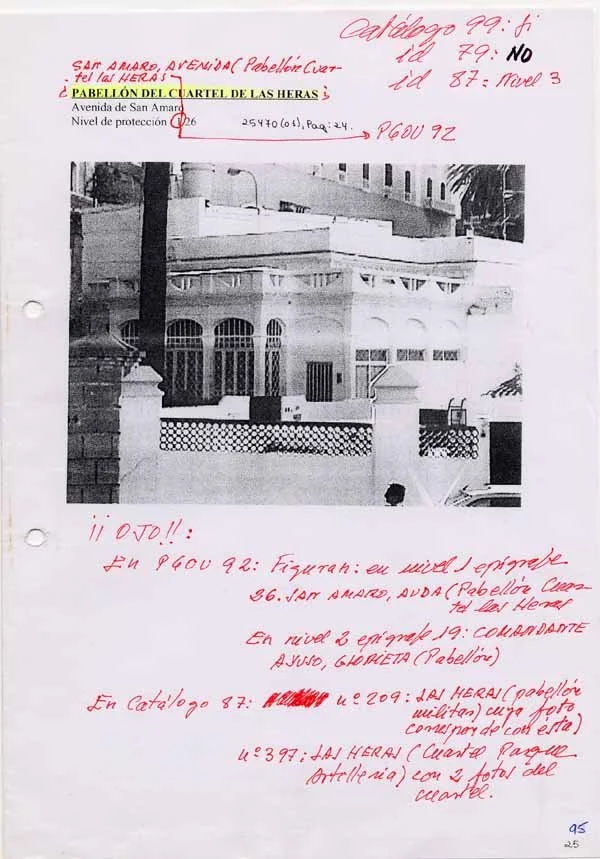 Catálogo 99: Si
id 79: NO
id 87: Nivel 3
SAN AMARO, AVENIDA (Pabellón Cuar-
tel las HERAS
¿ PABELLÓN DEL CUARTEL DE LAS HERAS ?
Avenida de San Amaro
Nivel de protección 1/26 25470(01), Pag: 24.
PGOU 92
¡¡ OJO!!:
En PGOU 92: Figuran: en nivel 1 epígrafe
26. SAN AMARO, AVDA (Pabellón Cuar-
tel las Heras
En nivel 2 epígrafe 19: COMANDANTE
AYUSO, GLORIETA (Pabellón)
En Catálogo 87: nº 209: LAS HERAS (pabellón
militar) cuya foto
corresponde con ésta)
nº 397: LAS HERAS (Cuartel Parque
Artillería) con 2 fotos del
cuartel.
95
25